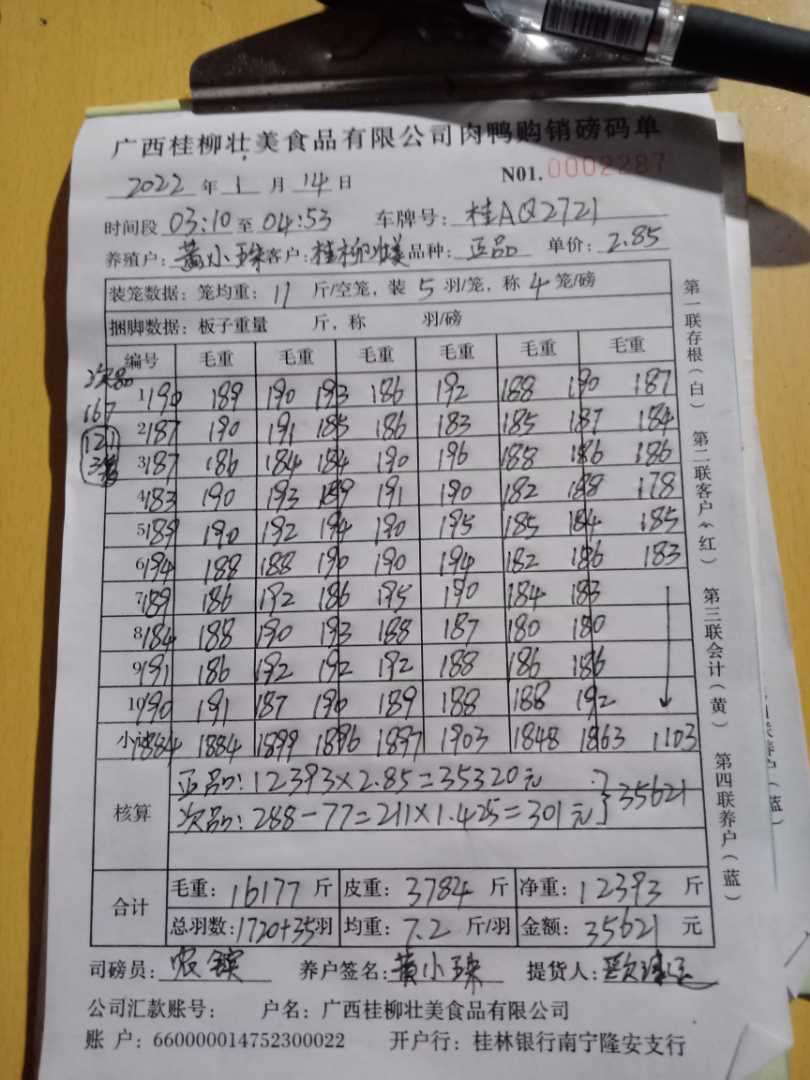 广西桂柳壮美食品有限公司肉鸭购销磅码单
2022 年 1 月 14 日 N01. 0002287
时间段 03:10 至 04:53 车牌号: 桂AQ2721
养殖户: 黄小珠 客户: 桂柳壮美 品种: 正品 单价: 2.85
装笼数据: 笼均重: 11 斤/空笼, 装 5 羽/笼, 称 4 笼/磅
捆脚数据: 板子重量 斤, 称 羽/磅
编号 毛重 毛重 毛重 毛重 毛重 毛重
次品
167
121
1 190 189 190 193 186 192 188 190 187
2 187 190 191 185 186 183 185 187 184
3 187 186 184 184 190 196 188 186 186
4 183 190 193 189 191 190 182 188 178
5 189 190 192 194 190 195 185 184 185
6 194 188 188 190 190 194 182 186 183
7 189 186 192 186 195 190 184 183
8 184 188 190 193 188 187 180 180
9 191 186 192 192 192 188 186 186
10 190 191 187 190 189 188 188 192
小计 1884 1884 1899 1896 1897 1903 1848 1863 1103
核算
正品: 12393×2.85=35320元
次品: 288-77=211×1.425=301元 } 35621
合计
毛重: 16177 斤 皮重: 3784 斤 净重: 12393 斤
总羽数: 1720+35羽 均重: 7.2 斤/羽 金额: 35621 元
司磅员: 农镔 养户签名: 黄小珠 提货人:
公司汇款账号: 户名: 广西桂柳壮美食品有限公司
账 户: 660000014752300022 开户行: 桂林银行南宁隆安支行
第一联存根(白) 第二联客户(红) 第三联会计(黄) 第四联养户(蓝)